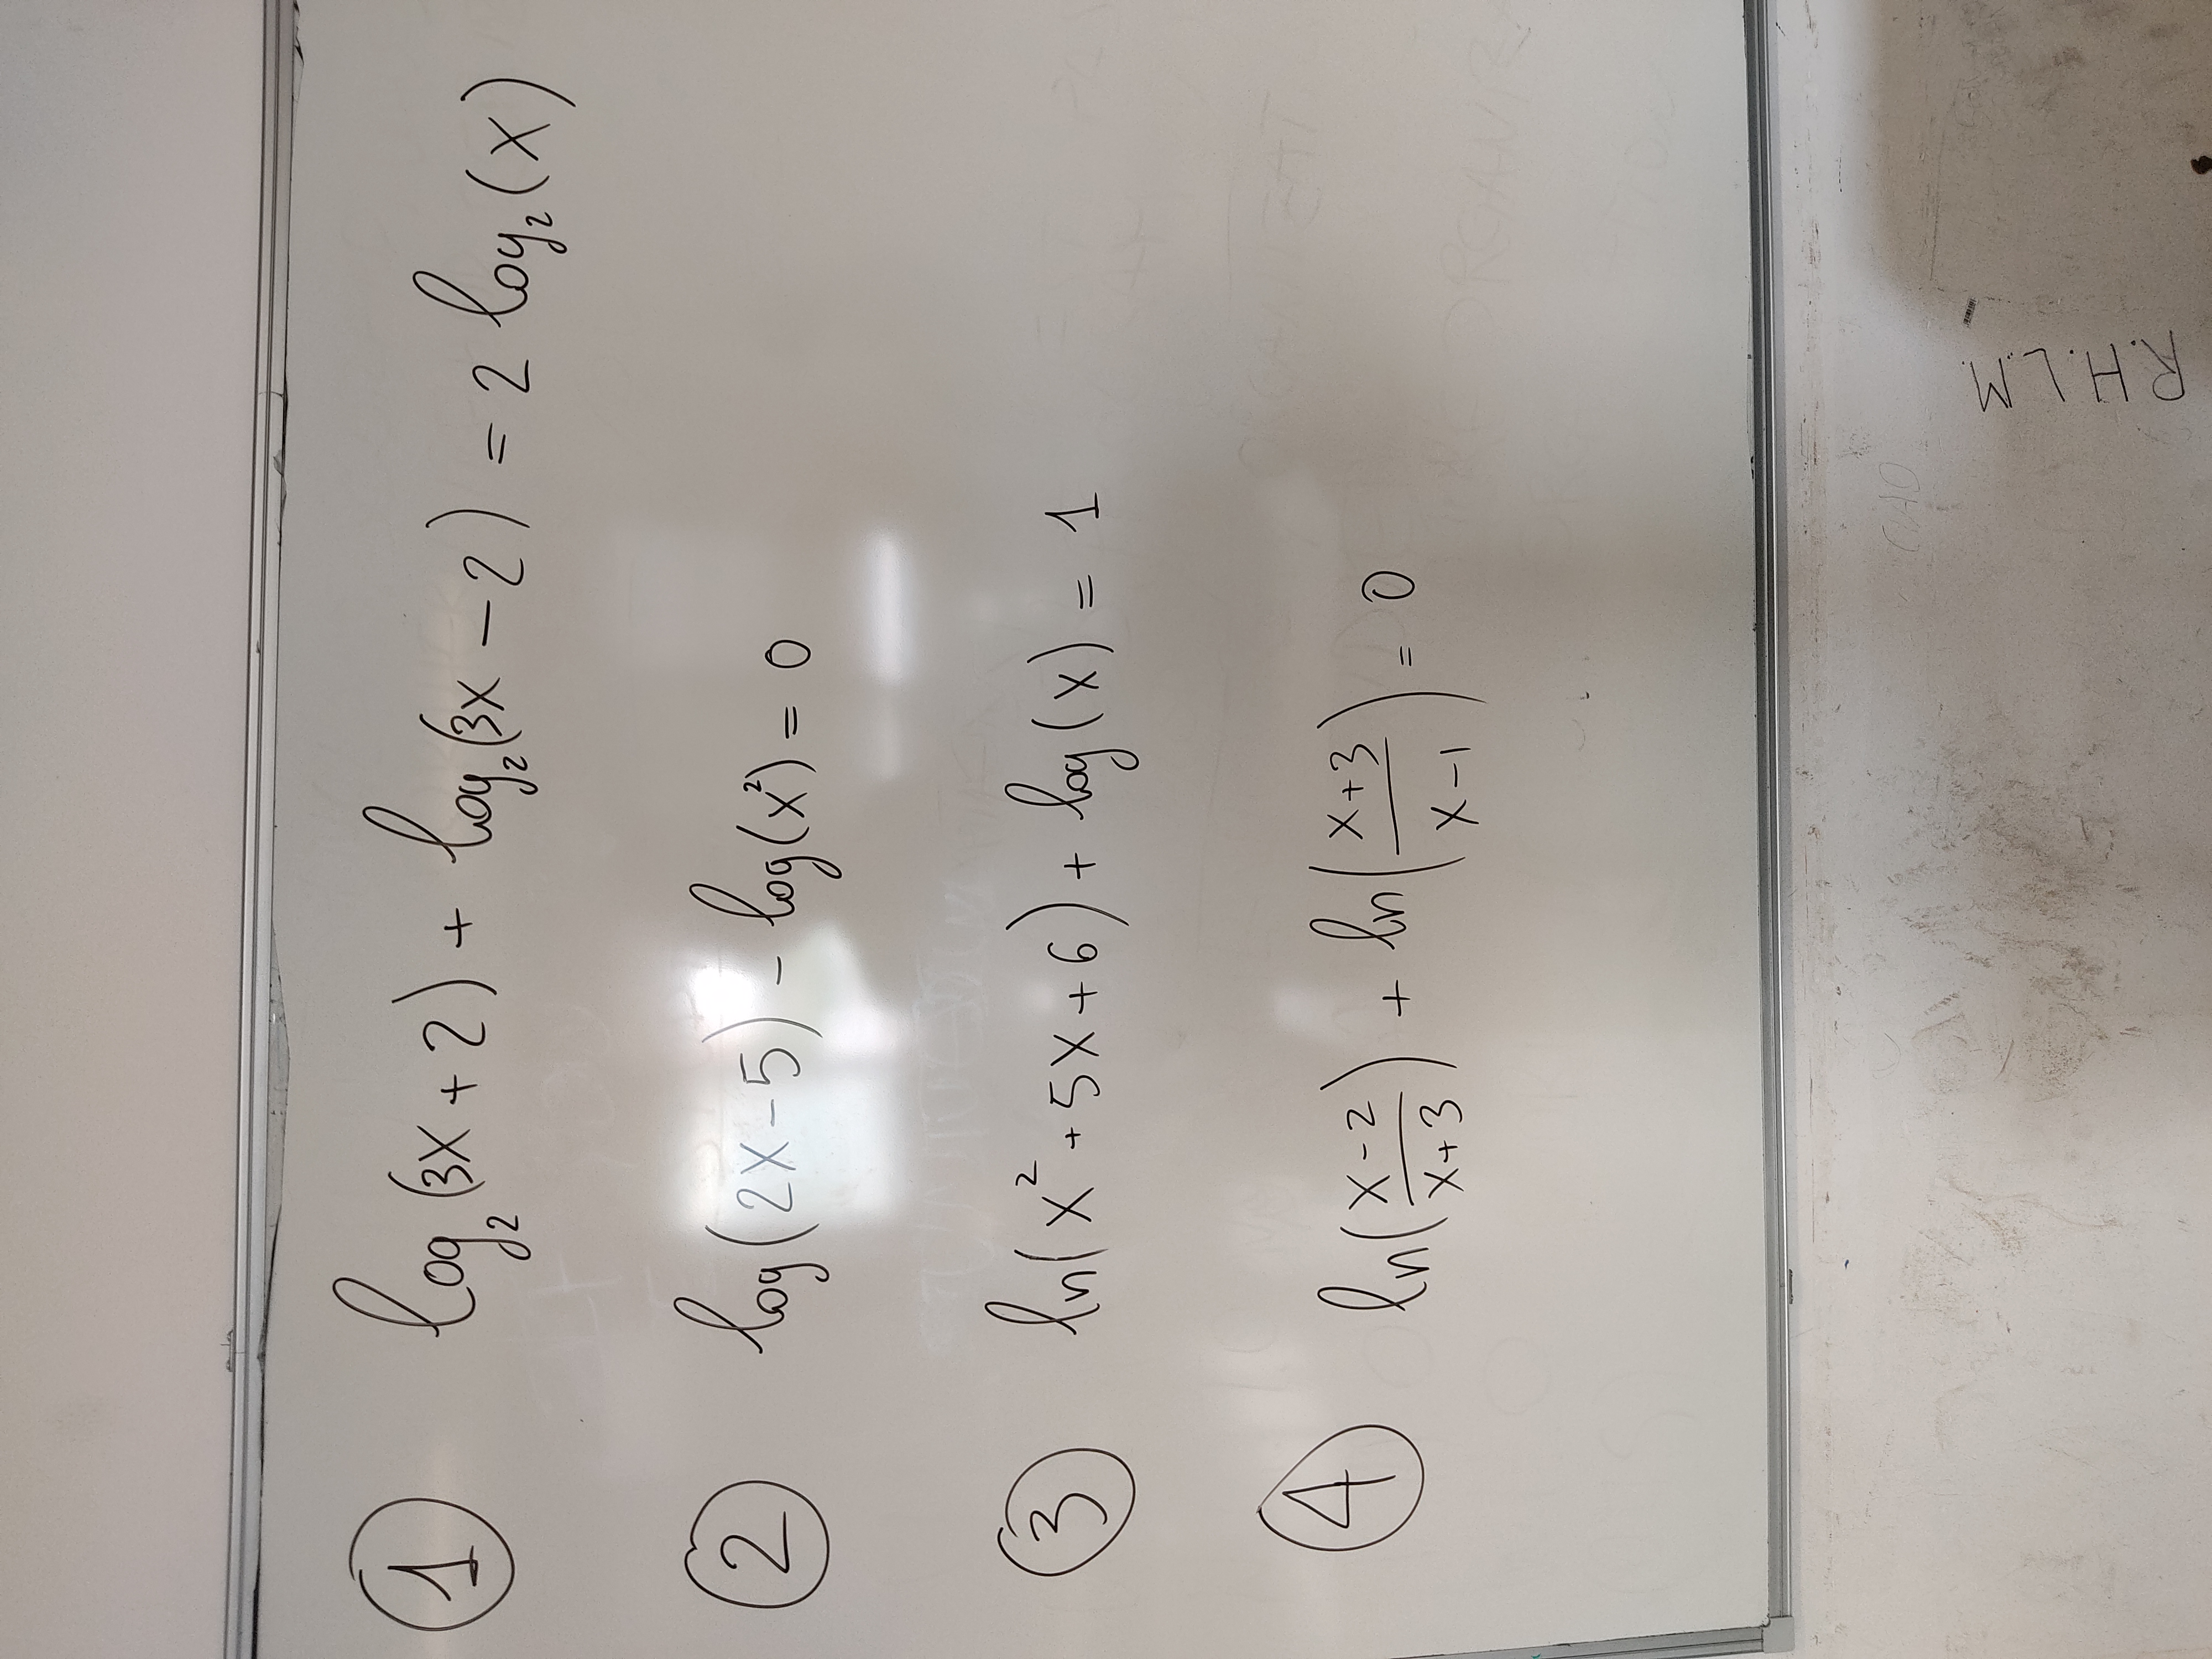 1 log₂(3x+2) + log₂(3x-2) = 2 log₂(x)
2 log(2x-5) - log(x²) = 0
3 ln(x²+5x+6) + log(x) = 1
4 ln((x-2)/(x+3)) + ln((x+3)/(x-1)) = 0
CIAO
R.H.L.M.